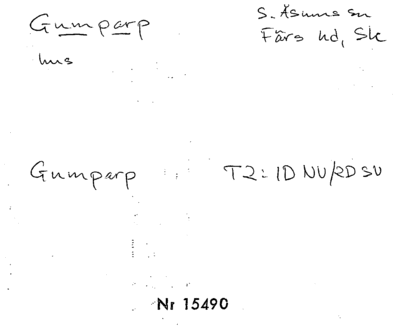 Gumparp
S. Åsums sn
Färs hd, Sk
hus
Gumparp
T2: 1D NV/2D SV
Nr 15490